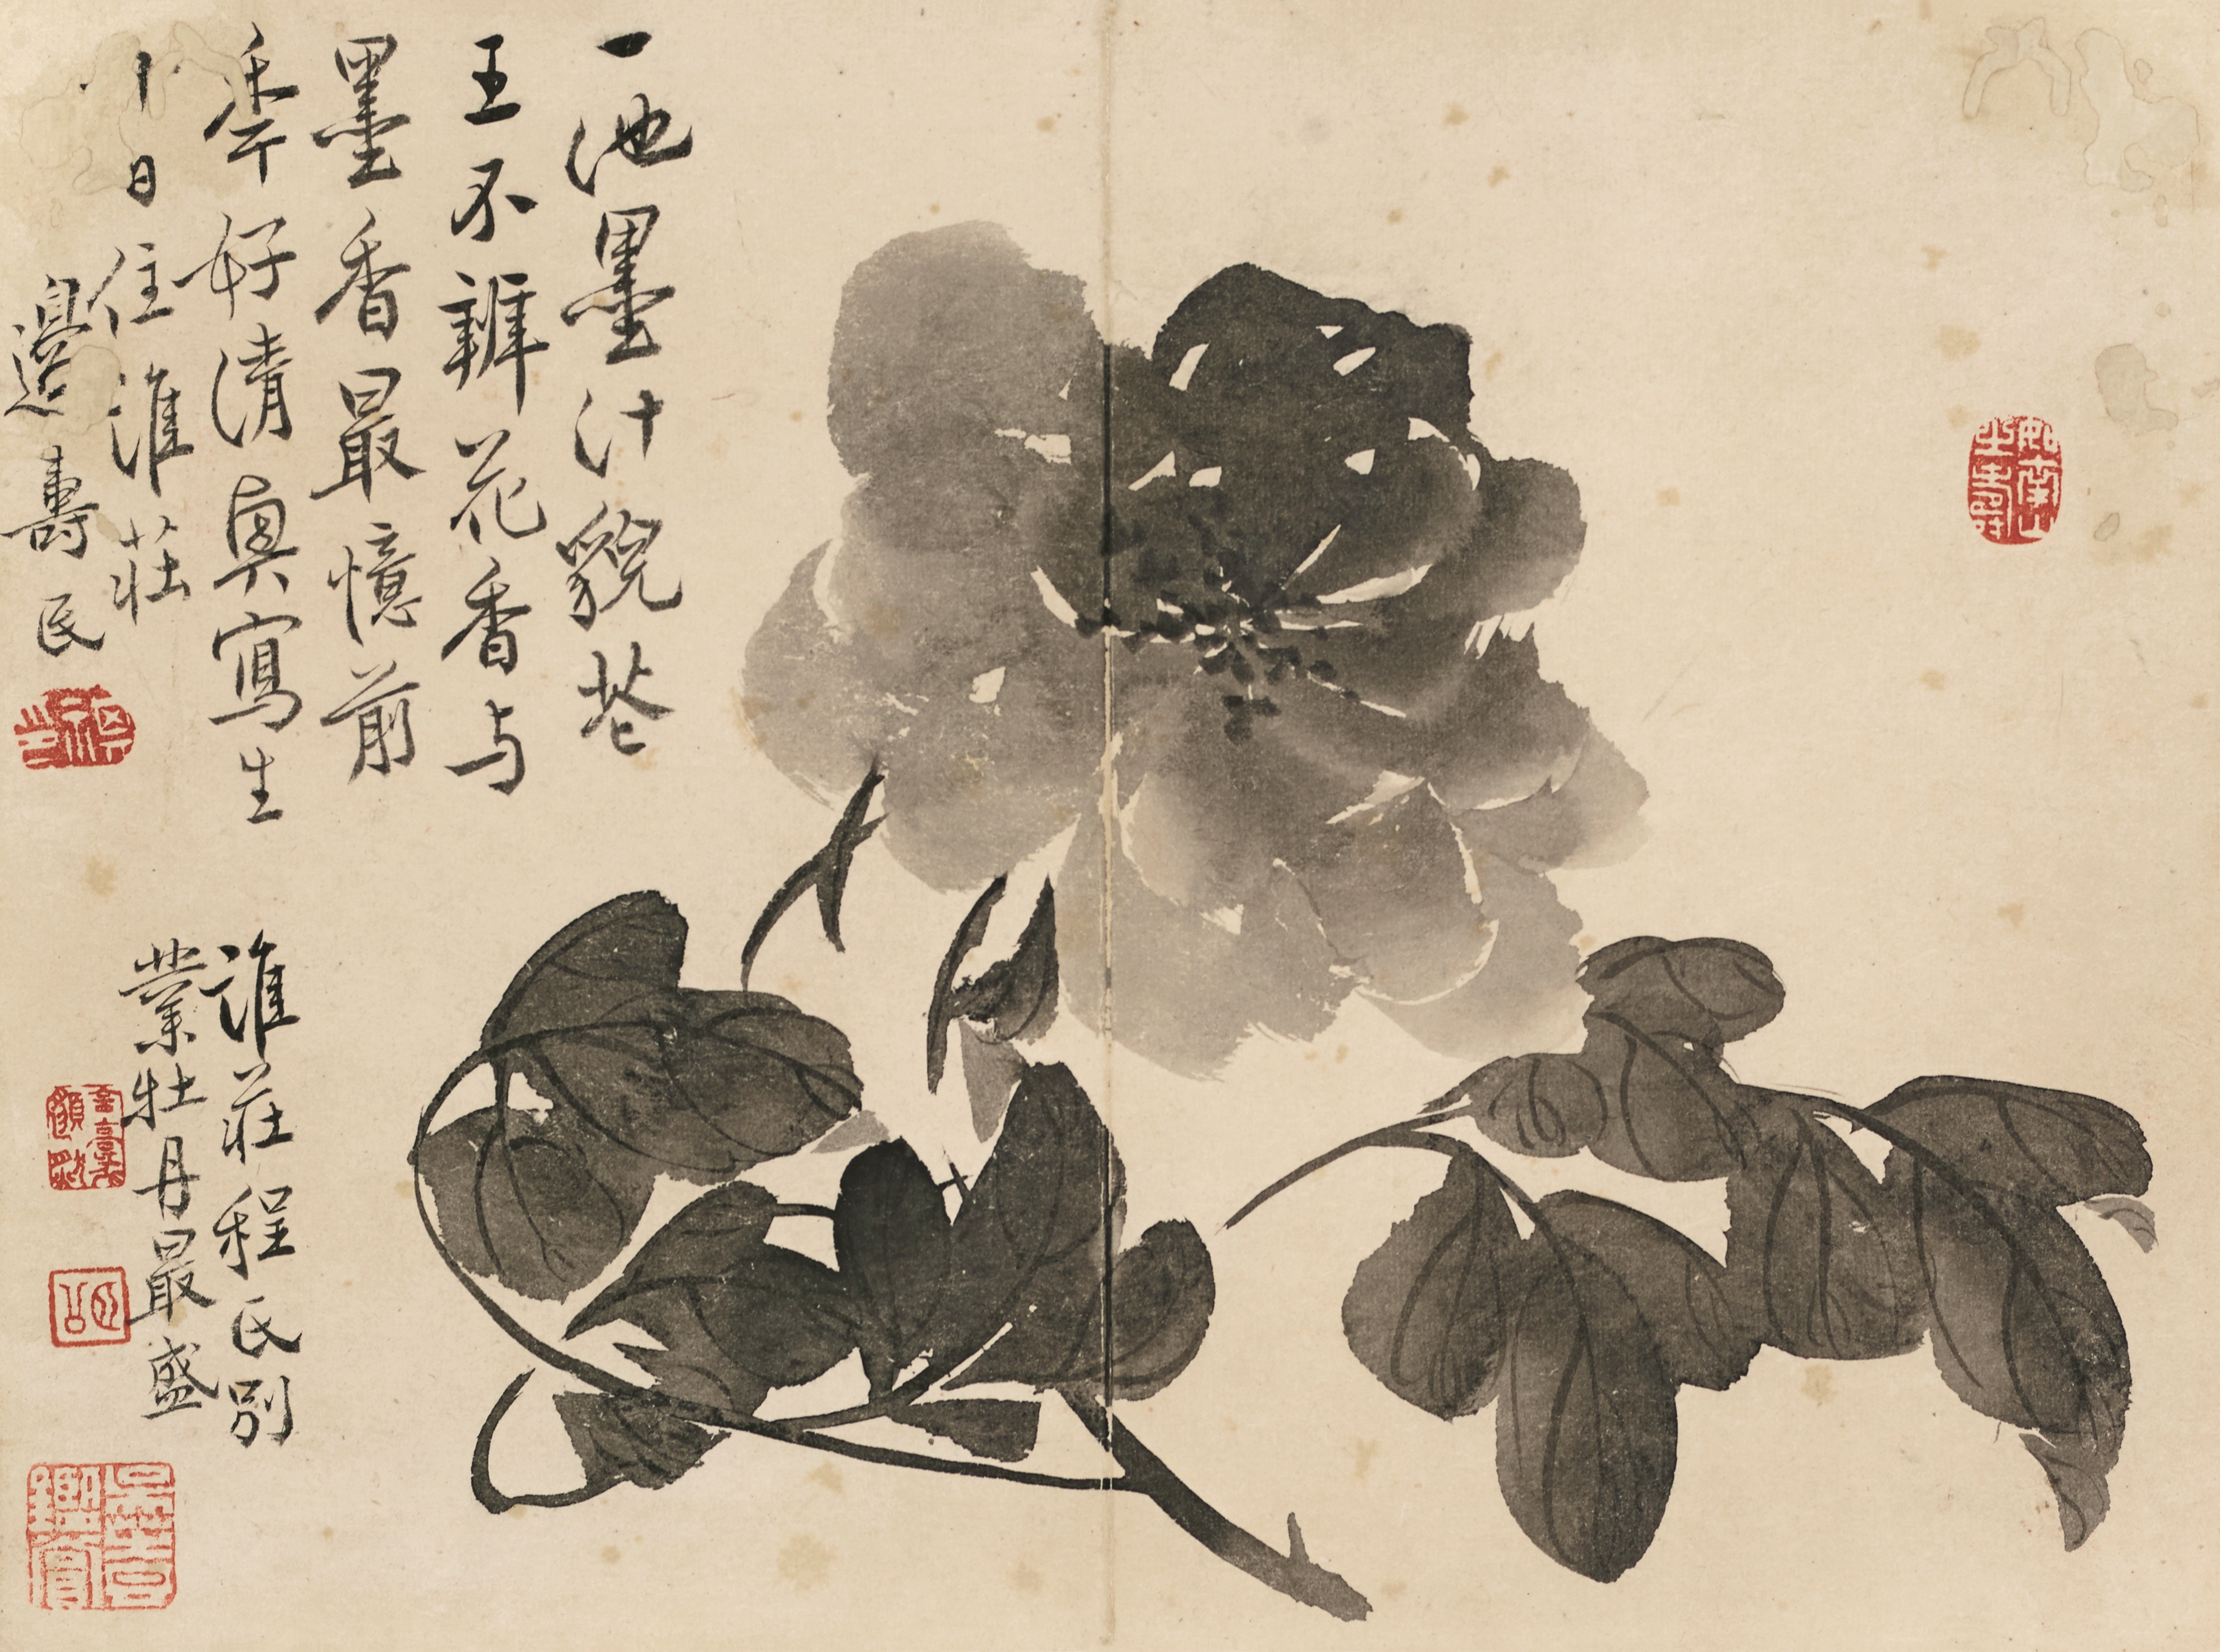 一池墨汁貌花
王不辨花香与
墨香最憶前
秊好清真寫生
十日住淮莊
邊壽民
淮莊程氏别
業牡丹最盛